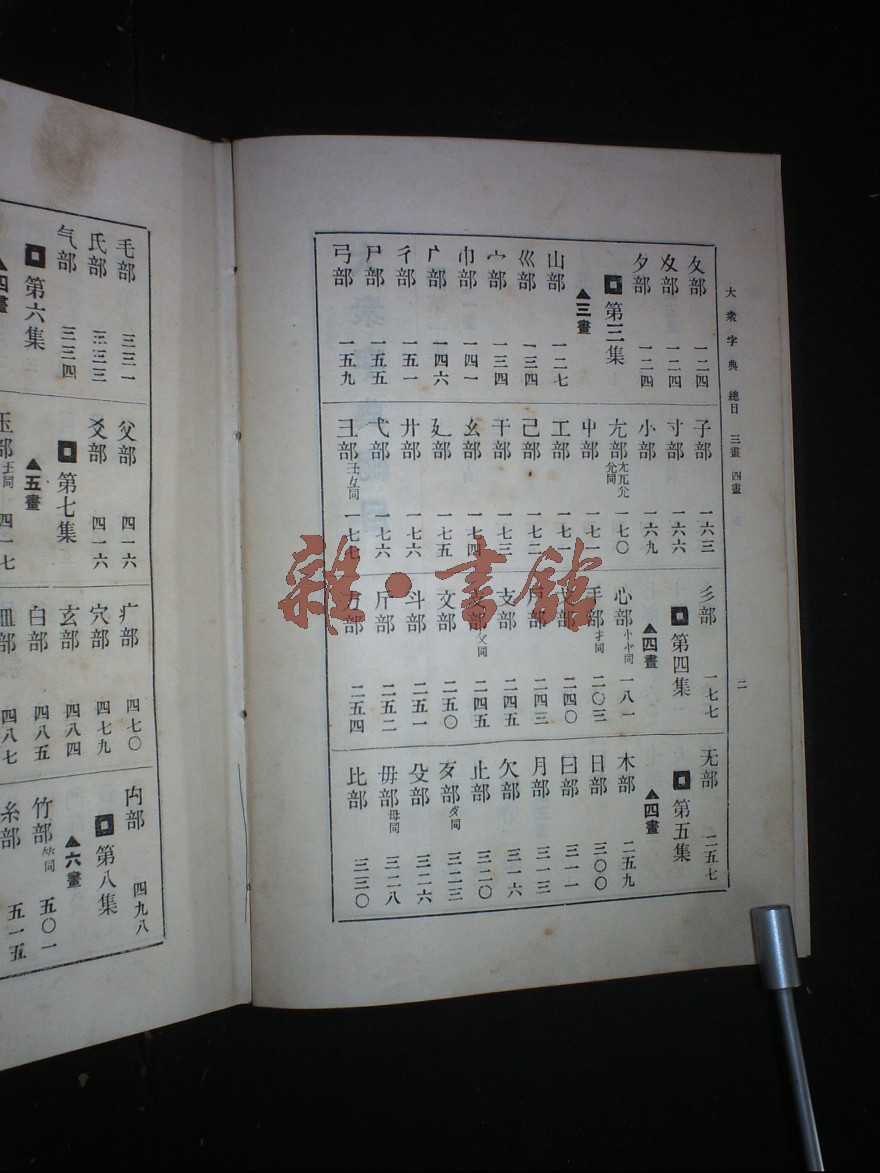 大衆字典 總目 三畫 四畫
二
夂部 一二四
夊部 一二四
夕部 一二四
第三集
▲三畫
山部 一二七
巛部 一三四
宀部 一三四
巾部 一四一
广部 一四六
彳部 一五一
尸部 一五五
弓部 一五九
子部 一六三
寸部 一六六
小部 一六九
尢部 同 一七〇
屮部 一七一
工部 一七一
己部 一七二
干部 一七三
幺部 一七四
廴部 一七五
廾部 一七六
弋部 一七六
彐部 同 一七七
彡部 一七七
第四集
▲四畫
心部 忄㣺同 一八一
手部 扌同 二〇三
戈部 二四〇
戶部 二四三
支部 二四五
攴部 攵同 二四五
文部 二五〇
斗部 二五一
斤部 二五二
方部 二五四
无部 二五七
第五集
▲四畫
木部 二五九
日部 三〇〇
曰部 三一一
月部 三一三
欠部 三一六
止部 三二〇
歹部 歺同 三二三
殳部 三二六
毋部 母同 三二八
比部 三三〇
毛部 三三一
氏部 三三三
气部 三三四
第六集
▲四畫
父部 四一六
爻部 四一六
第七集
▲五畫
玉部 王同 四一七
疒部 四七〇
穴部 四七九
玄部 四八四
白部 四八五
皿部 四八七
禸部 四九八
第八集
▲六畫
竹部 同 五〇一
糸部 五一五
雜·書館